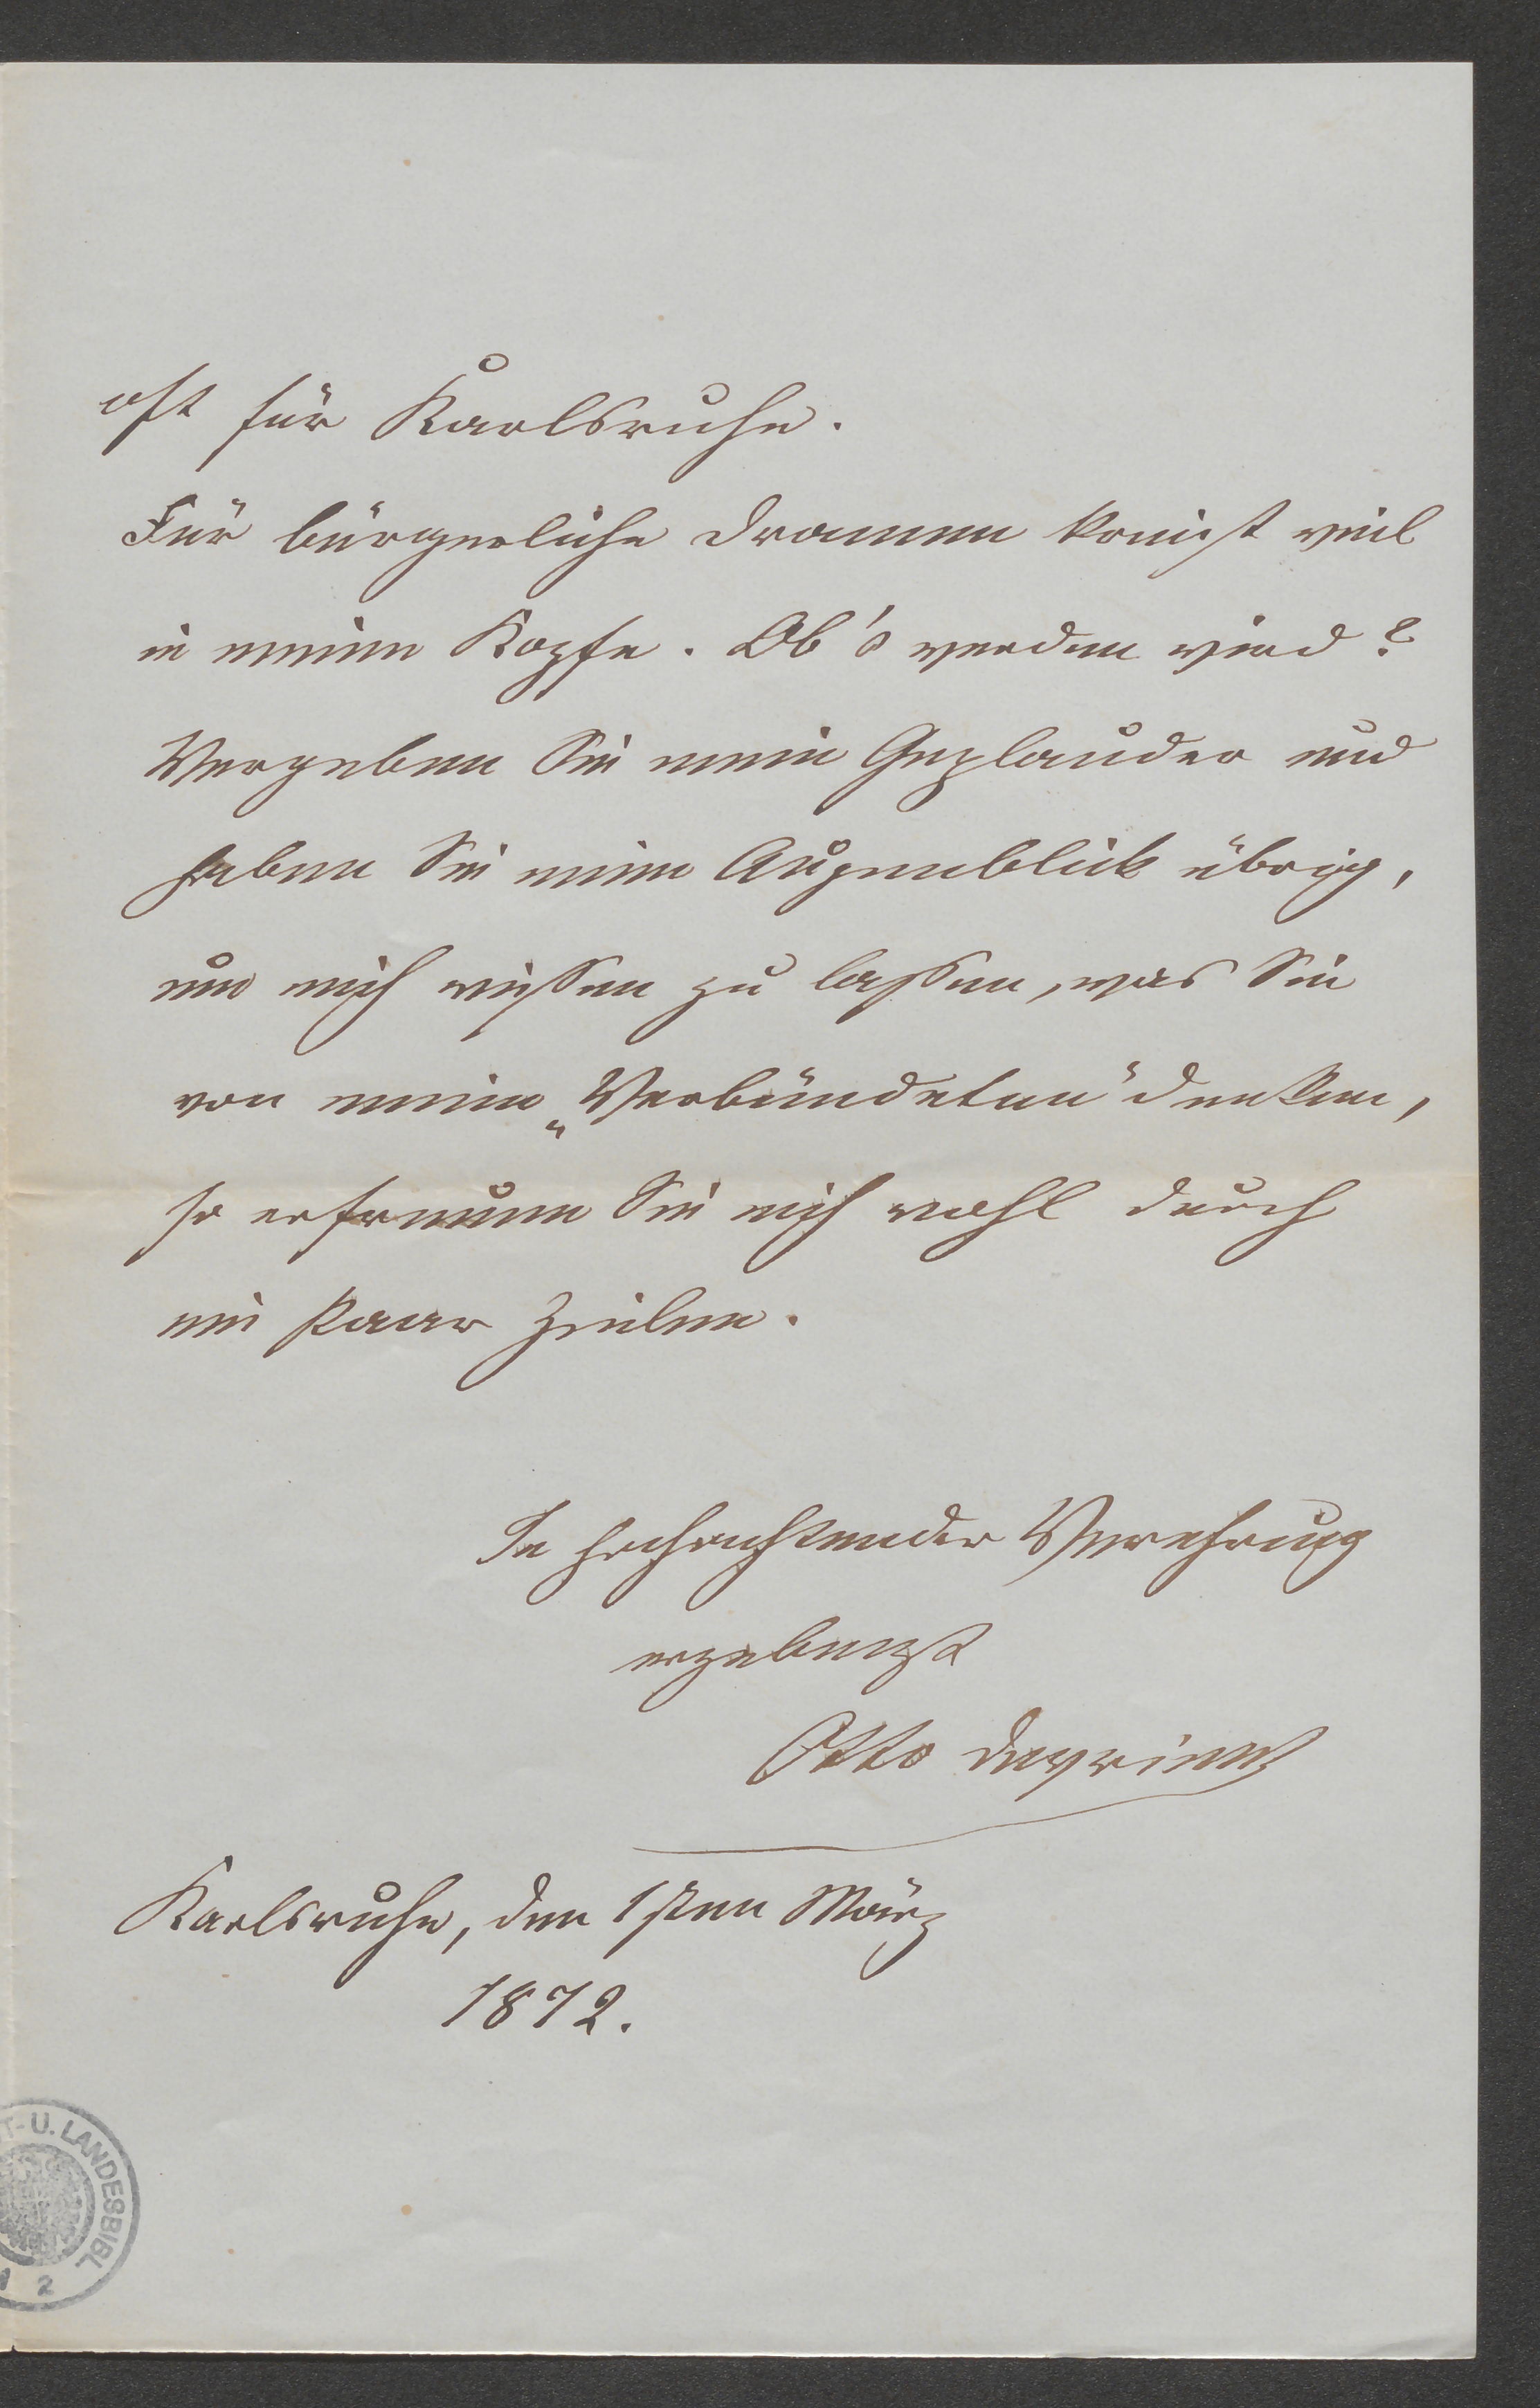 oft für Karlsruhe.
Für bürgerliche Dramen kreist viel
in meinem Kopfe. Ob's werden wird?
Vergeben Sie mein Geplauder und
haben Sie einen Augenblick übrig,
um mich wissen zu lassen, was Sie
von meinen „Verbündeten" denken,
so erfreuen Sie mich wohl durch
ein Paar Zeilen.
In hochachtender Verehrung
ergebenst
Otto Devrient
Karlsruhe, den 1sten März
1872.
T-U. LANDESBIBL
2